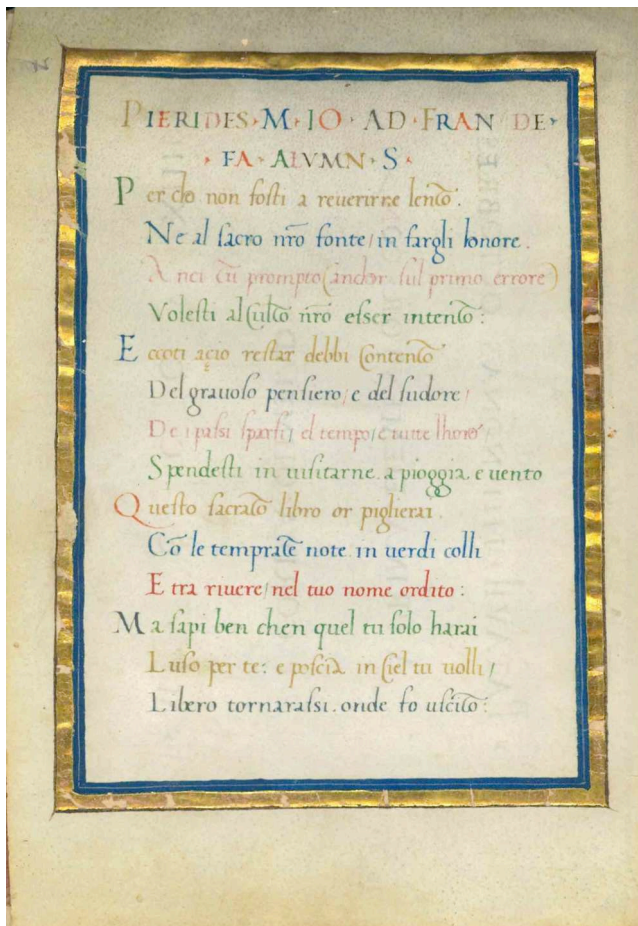 PIERIDES · M · IO · AD · FRAN DE ·
· FA · ALVMN · S ·
Per cho non fosti a reuerirne lento.
Ne al sacro nr̃o fonte / in fargli honore.
Anci tu prompto (anchor sul primo errore)
Volesti al Culto nr̃o esser intento:
Eccoti acio restar debbi Contento
Del grauoso pensiero / e del sudore /
De i passi sparsi / el tempo / e tutte lhore /
Spendesti in uisitarne. a pioggia. e uento
Questo sacrato libro or piglierai.
Cõ le temprate note. in uerdi colli
E tra riuere / nel tuo nome ordito:
Ma sapi ben chen quel tu solo harai
Luso per te: e poscia in Ciel tu uolli /
Libero tornarassi. onde fo uscito: